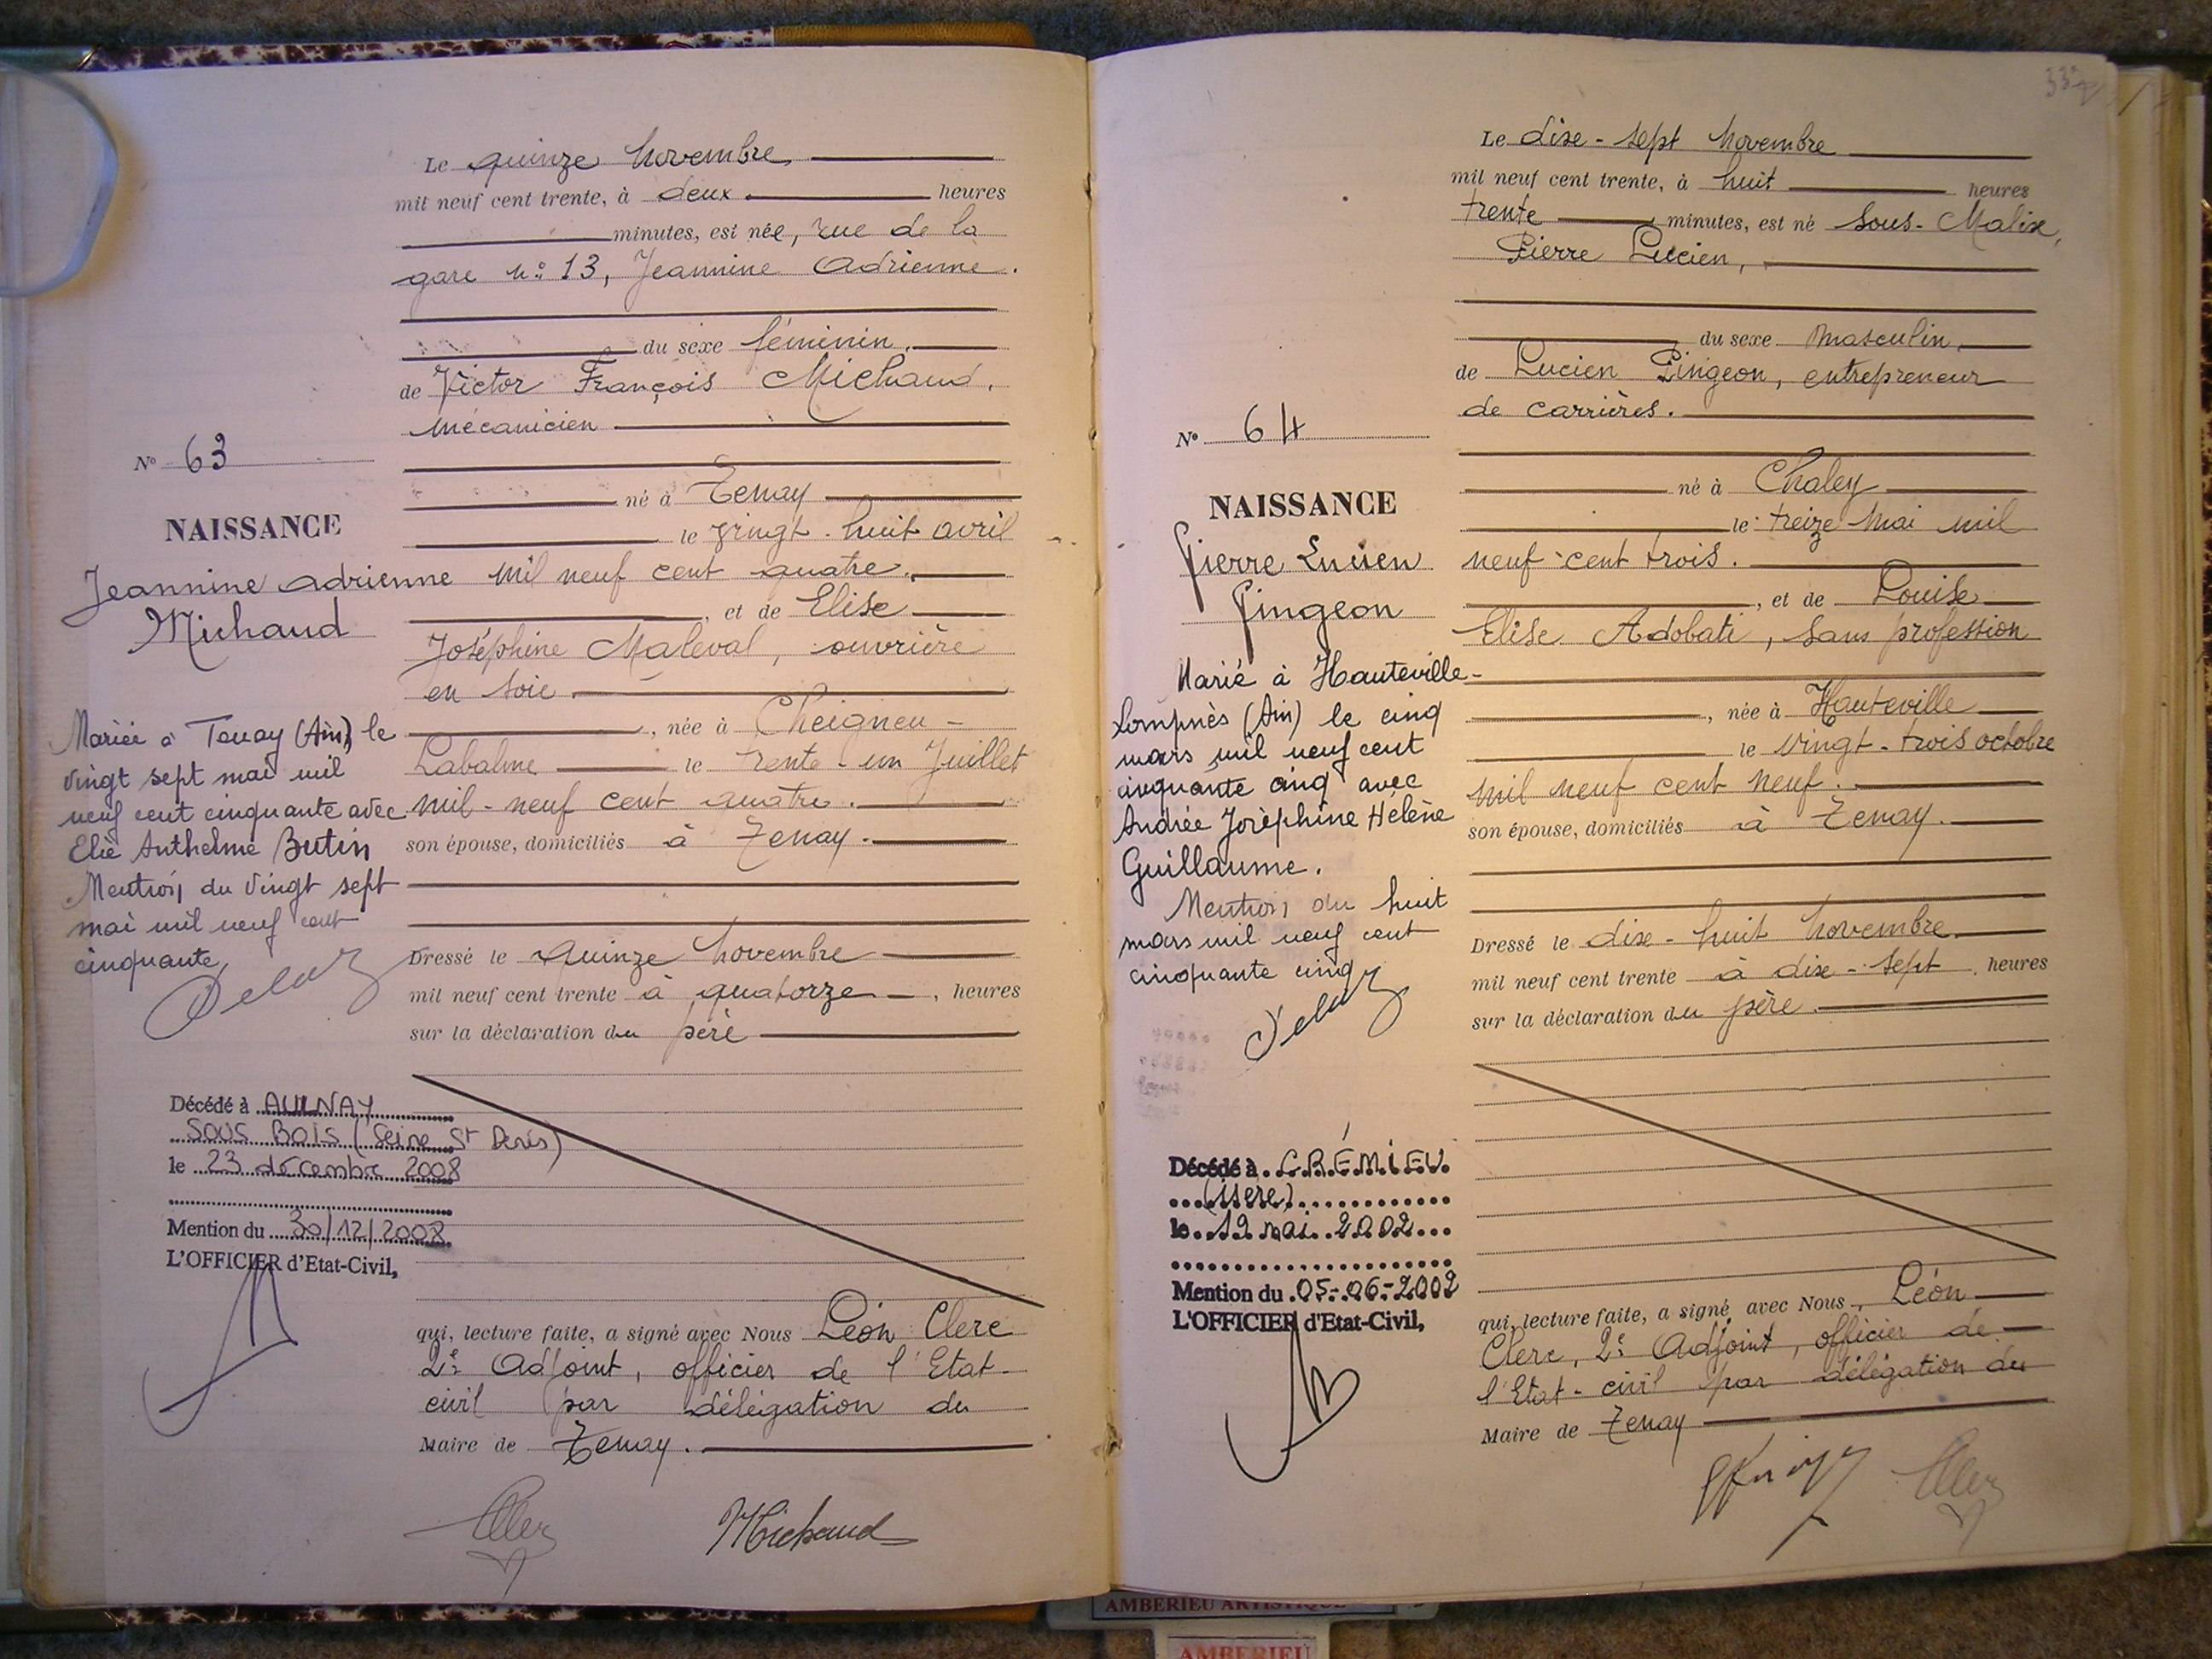 Le quinze Novembre
mil neuf cent trente, à deux heures
minutes, est née, rue de la
gare n° 13, Jeannine Adrienne.
du sexe féminin.
de Victor François Michaud,
mécanicien
N° 63
né à Tenay
NAISSANCE
le vingt-huit avril
Jeannine Adrienne
Michaud
mil neuf cent quatre.
, et de Elise
Joséphine Maleval, ouvrière
en soie
, née à Cheigneu-
Labalme le trente-un Juillet
mil-neuf cent quatre.
son épouse, domiciliés à Tenay.
Mariée à Tenay (Ain) le
vingt sept mai mil
neuf cent cinquante avec
Elie Anthelme Butin
Mention du vingt sept
mai mil neuf cent
cinquante
Dressé le quinze Novembre
mil neuf cent trente à quatorze, heures
sur la déclaration du père
Décédé à AULNAY
SOUS BOIS (Seine St Denis)
le 23 décembre 2008
Mention du 30/12/2008
L'OFFICIER d'Etat-Civil,
qui, lecture faite, a signé avec Nous Léon Clerc
2e Adjoint, officier de l'Etat-
civil par délégation du
Maire de Tenay.
Michaud
Le dix-sept Novembre
mil neuf cent trente, à huit heures
trente minutes, est né Sous-Malix,
Pierre Lucien,
du sexe masculin,
de Lucien Pingeon, entrepreneur
de carrières.
N° 64
né à Chaley
NAISSANCE
le treize mai mil
neuf-cent trois.
Pierre Lucien
Pingeon
, et de Louise
Elise Adobati, sans profession
, née à Hauteville
le vingt-trois octobre
mil neuf cent neuf.
son épouse, domiciliés à Tenay.
Marié à Hauteville-
Lompnès (Ain) le cinq
mars mil neuf cent
cinquante cinq avec
Andrée Joséphine Hélène
Guillaume.
Mention du huit
mars mil neuf cent
cinquante cinq
Dressé le dix-huit Novembre
mil neuf cent trente à dix-sept, heures
sur la déclaration du père.
Décédé à CRÉMIEU
(isère)
le 12 mai 2002
Mention du 05-06-2002
L'OFFICIER d'Etat-Civil,
qui, lecture faite, a signé avec Nous, Léon
Clerc, 2e Adjoint, officier de
l'Etat-civil par délégation du
Maire de Tenay
AMBERIEU ARTISTIQUE
AMBERIEU